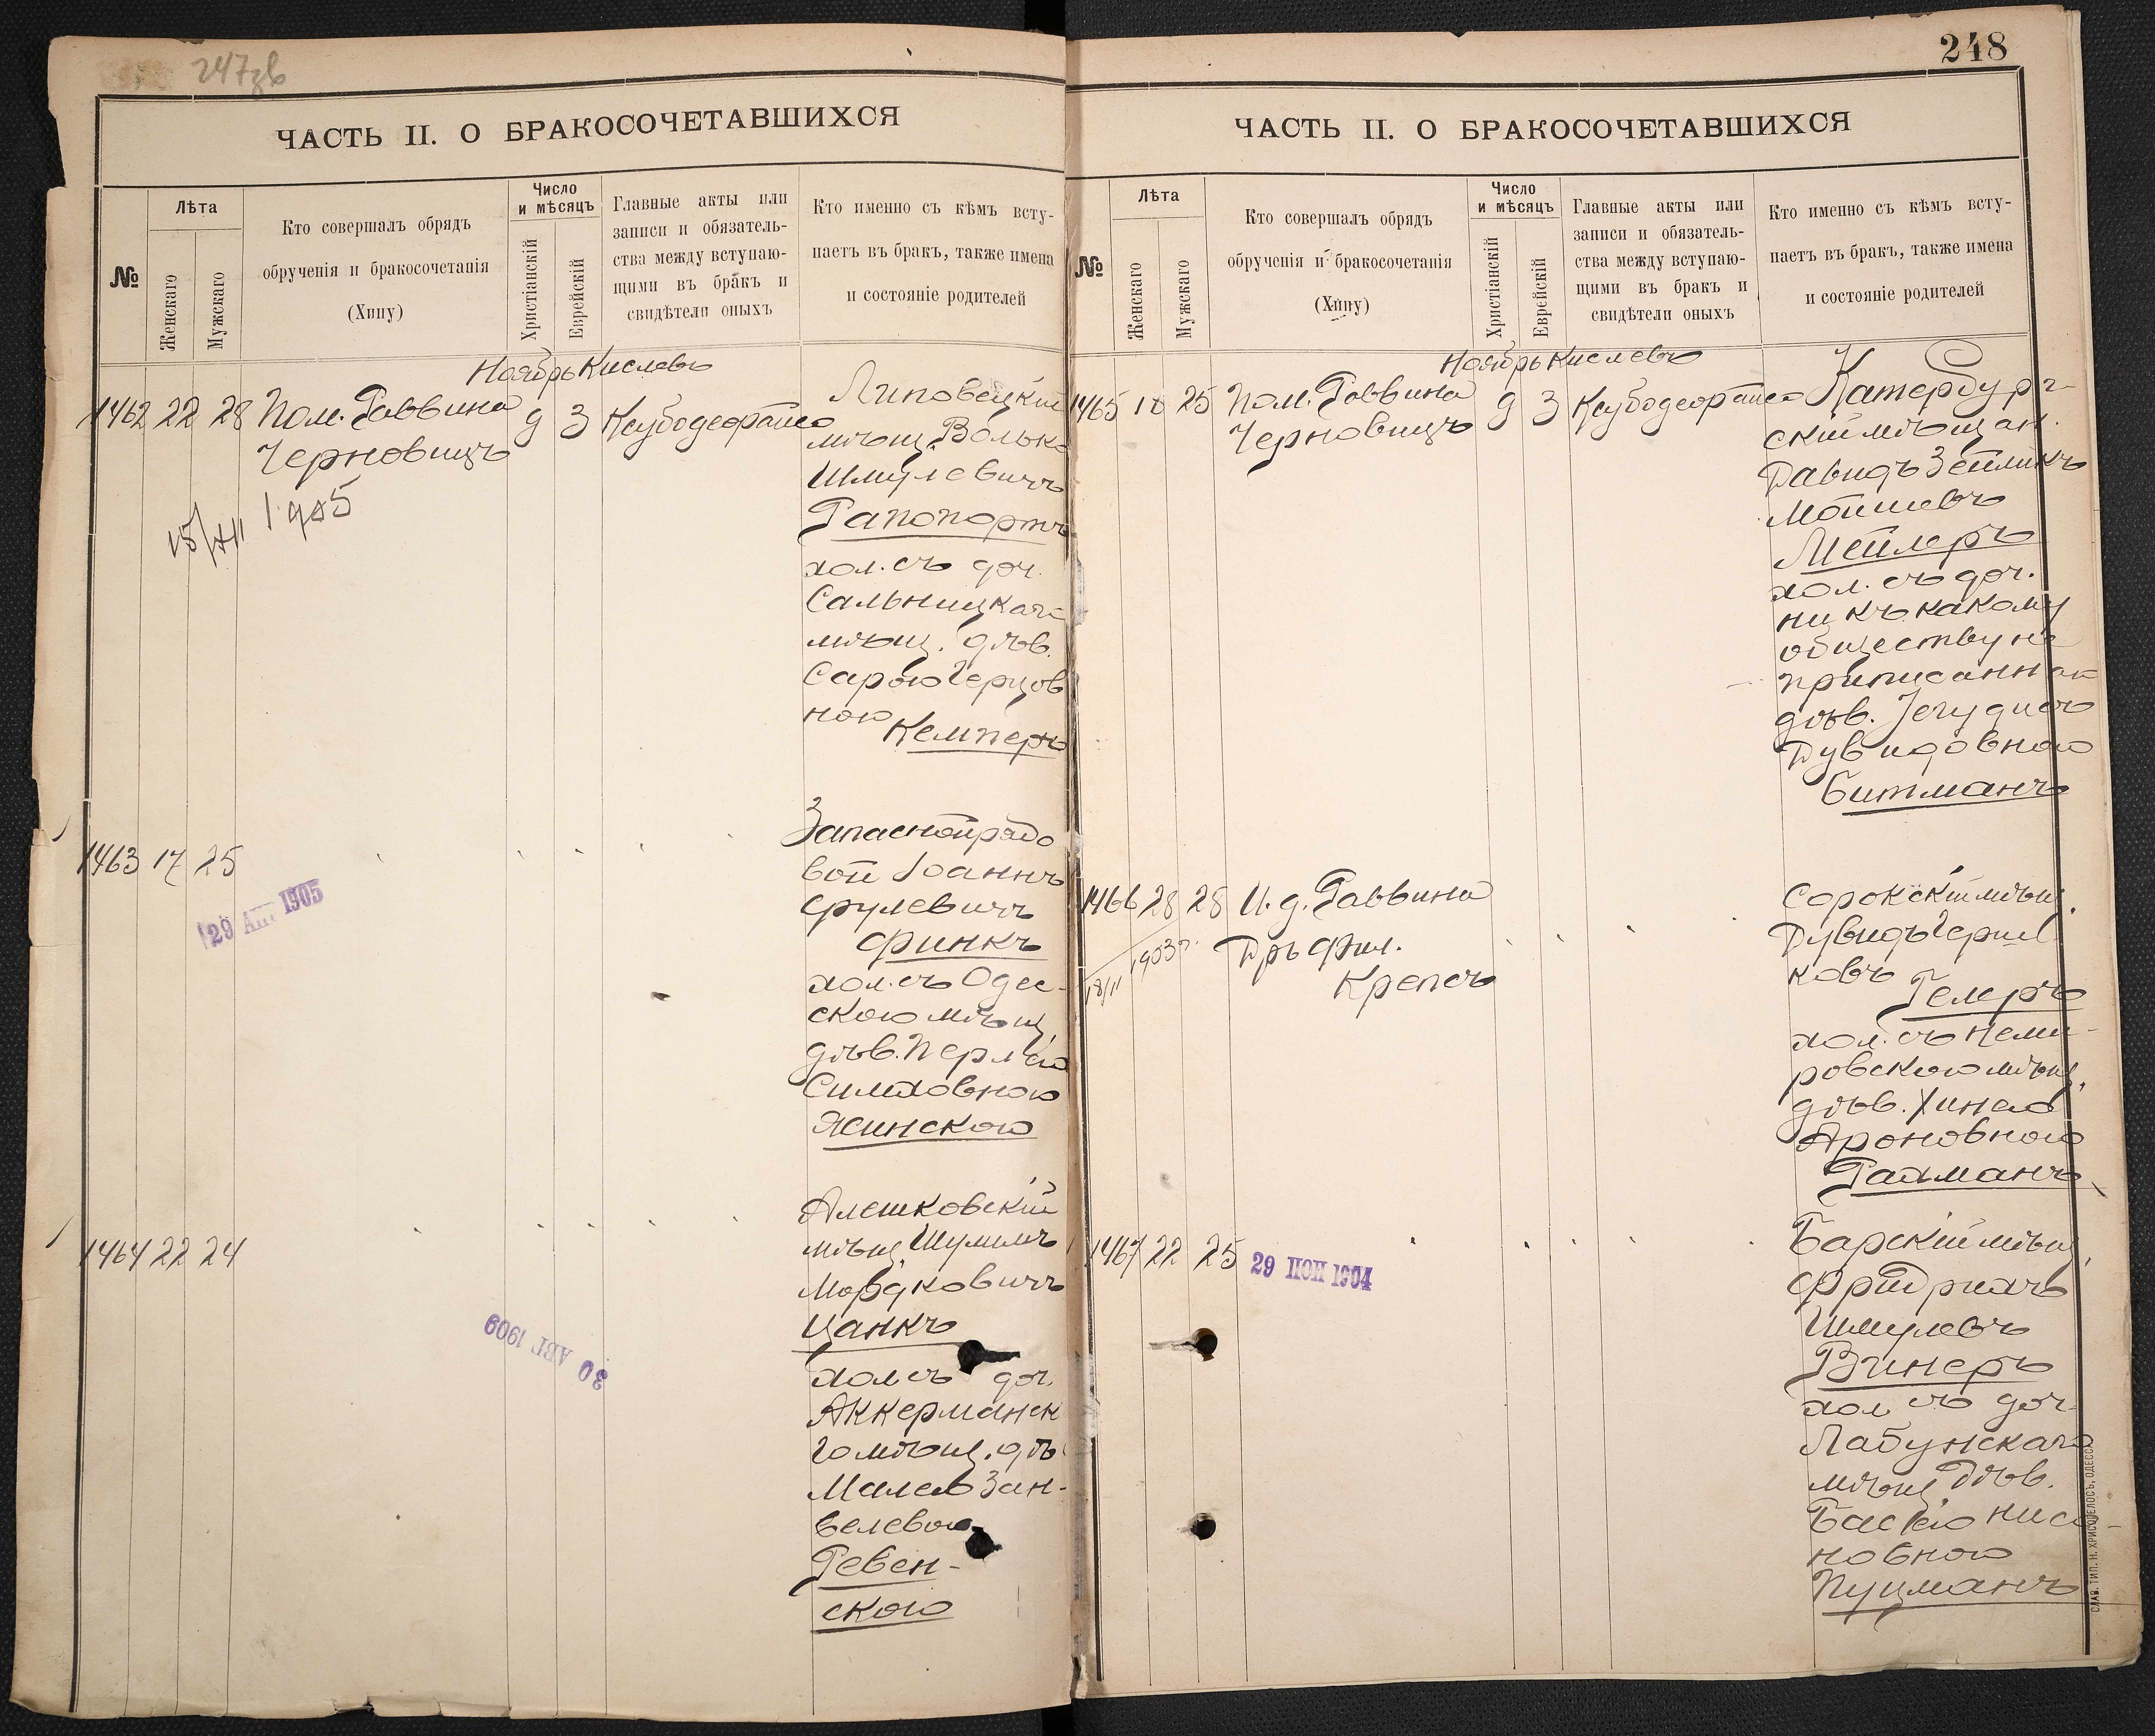 247зв
ЧАСТЬ II. О БРАКОСОЧЕТАВШИХСЯ
№
Лѣта
Женскаго
Мужскаго
Кто совершалъ обрядъ
обрученія и бракосочетанія
(Хипу)
Число
и мѣсяцъ
Христіанскій
Еврейскій
Главные акты или
записи и обязатель-
ства между вступаю-
щими въ бракъ и
свидѣтели оныхъ
Кто именно съ кѣмъ всту-
паетъ въ бракъ, также имена
и состояніе родителей
Ноябрь Кислевъ
1462 22 28 Пом. Раввина
Черновицъ
9 3
15/XII 1905
Липовецкій
мѣщ. Волько
Шмулевичъ
Рапопортъ
хол. съ доч.
Сальницкаго
мѣщ. дѣв.
Сарою Герцов
ною
Кемперъ
1463 17 25
29 1905
Запасной рядо
вой Іоаннъ
Срулевичъ
Финкъ
хол. съ Одес-
скою мѣщ.
дѣв. Перлею
Симховною
Ясинскою
1464 22 24
30 АВГ 1909
Алешковскій
мѣщ Шулимъ
Мордковичъ
Цанкъ
хол съ доч.
Аккерманск
го мѣщ. дѣ
Малею Зан-
велевою
Ревен-
скою
248
ЧАСТЬ II. О БРАКОСОЧЕТАВШИХСЯ
№
Лѣта
Женскаго
Мужскаго
Кто совершалъ обрядъ
обрученія и бракосочетанія
(Хипу)
Число
и мѣсяцъ
Христіанскій
Еврейскій
Главные акты или
записи и обязатель-
ства между вступаю-
щими въ бракъ и
свидѣтели оныхъ
Кто именно съ кѣмъ всту-
паетъ въ бракъ, также имена
и состояніе родителей
Ноябрь Кислевъ
1465 18 25 Пом. Раввина
Черновицъ
9 3
Катербург-
скій мѣщан.
Давидъ Зейликъ
Мошковъ
Мейлеръ
хол. съ доч.
ни къ какому
обществу не
приписаннаго
дѣв. Іегудисъ
Дувидовною
Битманъ
1466 28 28 И. д. Раввина
Дръ Фил.
Крепсъ
18/II 1903 г.
Сорокскій мѣщ.
Дувидъ Герш
ковъ
Гелеръ
хол. съ Неми-
ровскою мѣщ.
дѣв. Хинею
Ароновною
Рахманъ
1467 22 25
29 НОЯ 1904
Барскій мѣщ.
Фридрихъ
Шмулевъ
Винеръ
хол съ доч
Лабунскаго
мѣщ дѣв.
Басею Нисе-
новною
Пуцманъ
СЛАВ. ТИП. Н. ХРИСОГЕЛОСЪ, ОДЕССА